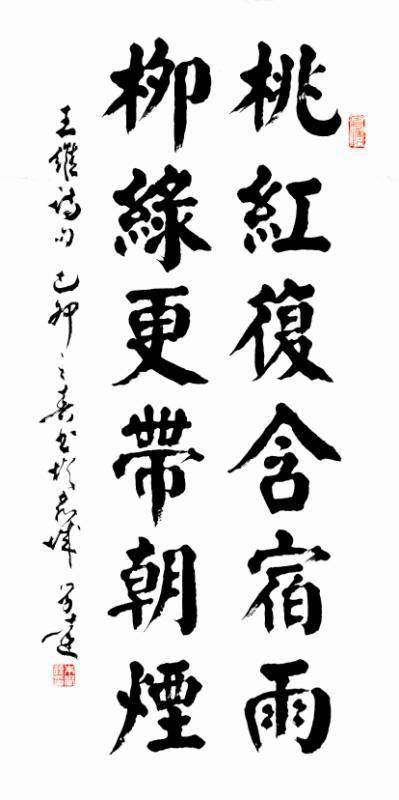 桃紅復含宿雨
柳綠更帶朝煙
王維詩句己卯之春書於